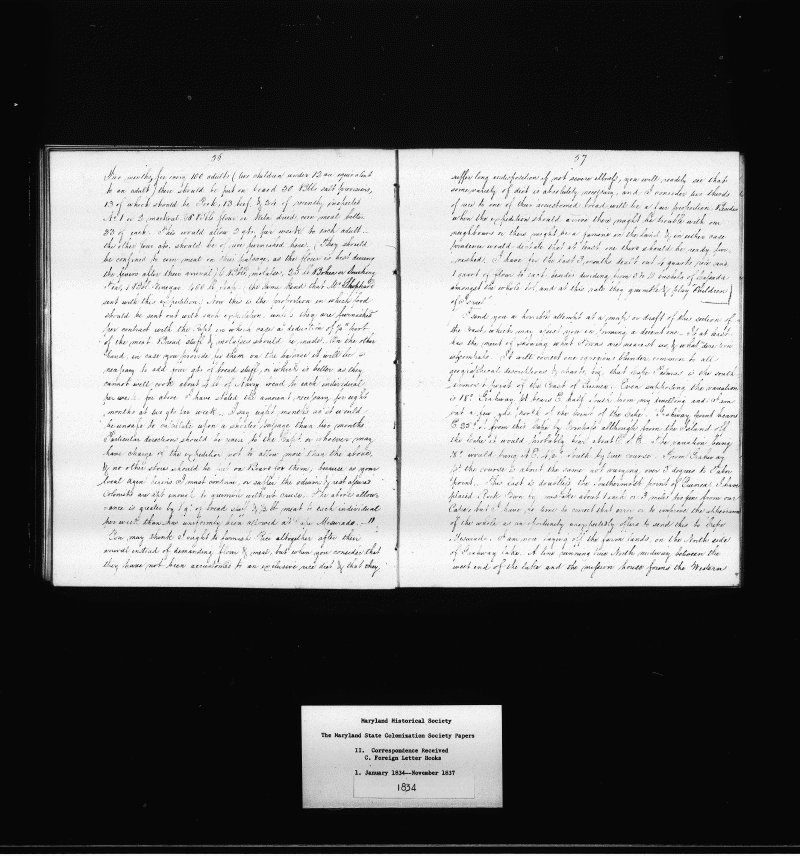 36
for every 100 adults (two children under 12 an equivalent
to an adult) there should be put on board 30 Bbls salt provisions,
13 of which should be Pork, 13 beef & 3 or 4 of recently inspected
No 1 or 2 mackerel. 68 Bbls flour or kiln dried corn meal better
33 of each. This would allow 3 qts. per week to each adult
the other two qts. should be of rice furnished here. (They should
be confined to corn meal on their passage, as the flour is best during
the fevers after their arrival) 6 Bbls. molasses, 25 lb Bohea or Souchong
Tea, 1 Bbl. Vinegar 400 lb Soap
sent with this expedition; Now this is the proportion in which food
should be sent out with each expedition unless they are furnished
per contract with the Capt. in which case a deduction of
of the meat Bread stuff & molasses should be made. On the other
hand, in case you provide for them on the
necessary to add four qts of bread stuff, or which is better as they
cannot well cook about 4 lb of Navy bread to each individual
per week for above I have stated the amount necessary for eight
months at two qts per week. I say eight months as it would
be unsafe to calculate upon a shorter passage than two months
Particular directions should be given to the Capt. or whoever may
have charge of the expedition not to allow more than the above,
& no other stores should be put on board for them, because as your
local agent here is I must contain or suffer the odium & rest assured
Colonists are apt enough to quarrel without cause. The above allow-
ance is greater by 1 qt of bread stuff & ½ lb meat to each individual
per week than has uniformly been allowed at Cape Mesurado.
You may think I ought to furnish Rice altogether after their
arrival instead of demanding flour & meal, but when you consider that
they have not been accustomed to an exclusive rice diet & that they
37
suffer long indisposition if not severe illness, you will readily see that
some variety of diet is absolutely necessary, and I consider two thirds
of rice to one of their accustomed bread will be a fair proportion. Besides
when the expedition should arrive there might be trouble with our
neighbours or there might be a famine in the land, & in either case
prudence would dictate that at least one third should be ready fur-
nished. I have for the last 3 months dealt out 2 quarts rice and
1 quart of flour to each besides dividing from 5 to 10 bushels of Cassada
amongst the whole lot, and at this rate they grumble & play Children
of Israel"
I send you a horrible attempt at a map or draft of this section of
the Coast, which may assist you in forming a decent one. It at least
has the merit of showing what Towns are nearest us, & what direction
It will correct one egregious blunder common to all
geographical descriptions & charts viz. that Cape Palmas is the south
ernmost point of the Coast of Guinea. Even supposing the variation
is 18° Garaway Pt bears E half south from my dwelling and I am
not a few yds north of the point of the Cape. Garaway point bears
E.
the Cape it would probably bear about E. & N. The variation being
18° would bring it E.S.E. South by true course. From Garaway
Pt the course is about the same not varying over 3 degrees to Tabou
point. This last is doubtless the Southernmost point of Guinea. I have
placed Rock Town by mistake about 1 inch or 3 miles too far from our
Cape, but I have no time to correct that error or to improve the appearance
of the whole as an opportunity unexpectedly offers to send this to Cape
Mesurado. I am now laying off the farm lands, on the North side
of Garaway Lake. A line running due North midway between the
west end of the lake and the mission house forms the Western
Maryland Historical Society
The Maryland State Colonization Society Papers
II. Correspondence Received
C. Foreign Letter Books
1. January 1834--November 1837
1834